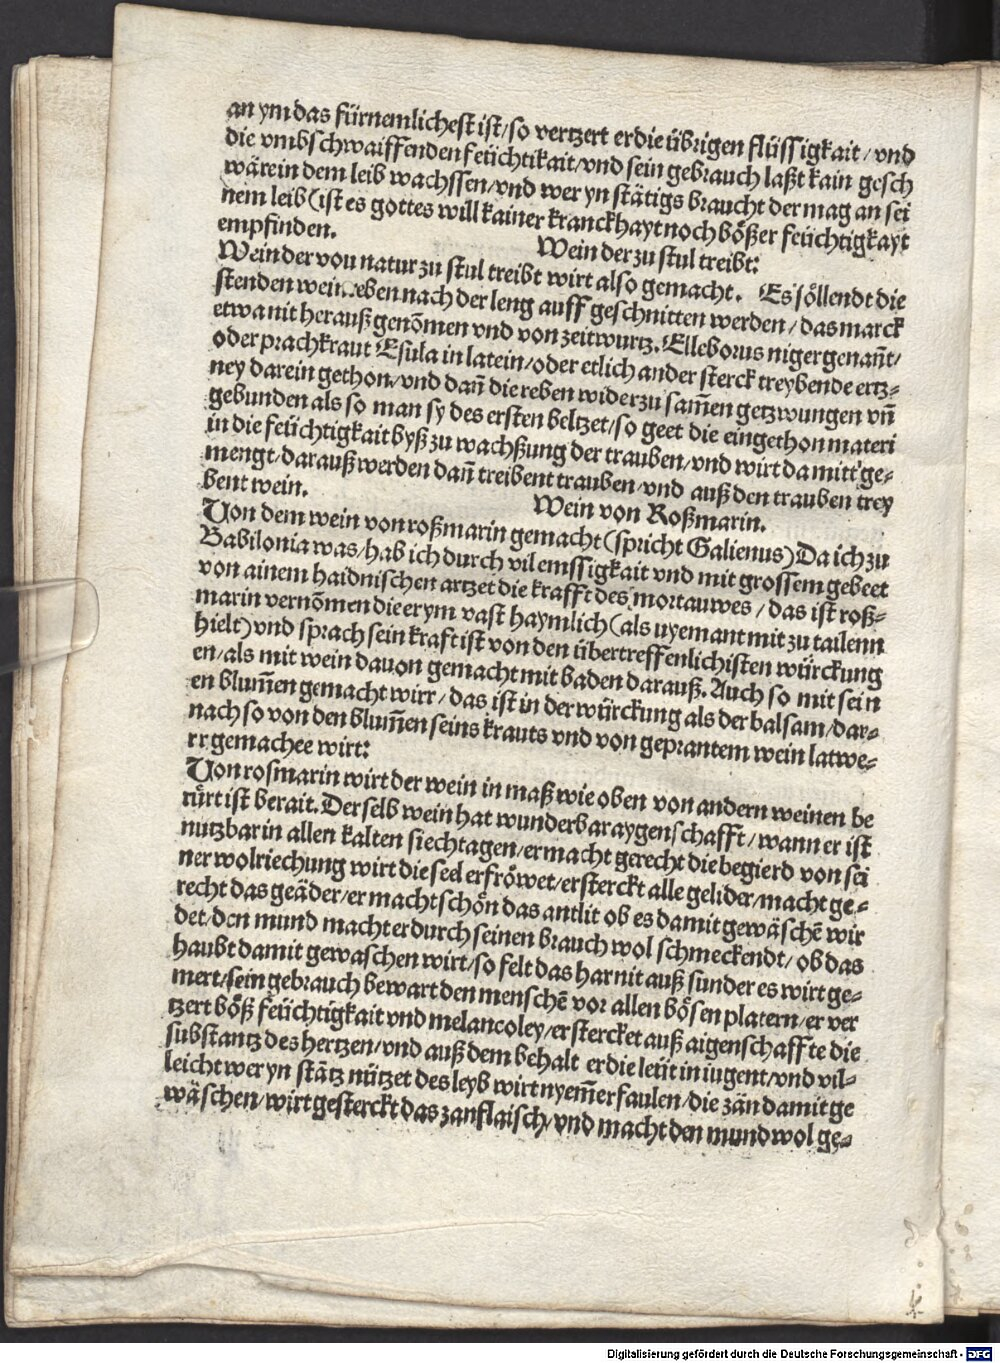 an ym das fürnemlichest ist/so vertzert er die übrigen flüssigkait/vnd
die vmbschwaiffenden feüchtikait/vnd sein gebrauch laßt kain gesch
wär ein dem leib wachssen/vnd wer yn stätigs braucht der mag an sei
nem leib (ist es gottes will kainer kranckhayt noch bößer feüchtigkayt
empfinden.
Wein der zu stul treibt:
Wein der vou natur zu stul treibt wirt also gemacht. Es söllendt die
stenden wein reben nach der leng auff geschnitten werden/das marck
etwa nit herauß genōmen vnd von zeitwurtz. Elleborus niger genañt/
oder prachkraut Esula in latein/oder etlich ander sterck treybende ertz⸗
ney darein gethon/vnd dañ die reben wider zu sam̄en getzwungen vñ
gebunden als so man sy des ersten beltzet/so geet die eingethon materi
in die feüchtigkait byß zu wachßung der trauben/vnd wirt da mitt ge⸗
mengt/darauß werden dañ treibent trauben/vnd auß den trauben trey
bent wein.
Wein von Roßmarin.
Von dem wein von roßmarin gemacht (spricht Galienus) Da ich zu
Babilonia was/hab ich durch vil emssigkait vnd mit grossem gebeet
von ainem haidnischen artzet die krafft des mortauwes/das ist roß⸗
marin vernōmen die er ym vast haymlich (als uyemant mit zu tailenn
hielt) vnd sprach sein kraft ist von den übertreffenlichisten würckung
en/als mit wein dauon gemacht mit baden darauß. Auch so mit sein
en blum̄en gemacht wirr/das ist in der würckung als der balsam/dar⸗
nach so von den blum̄en seins krauts vnd von geprantem wein latwe⸗
rr gemachee wirt:
Von rosmarin wirt der wein in maß wie oben von andern weinen be
rürt ist berait. Der selb wein hat wunderbar aygenschafft/wann er ist
nutzbar in allen kalten siechtagen/er macht gerecht die begierd von sei
ner wolriechung wirt die seel erfröwet/er sterckt alle gelider/macht ge⸗
recht das geäder/er macht schön das antlit ob es damit gewäschē wir
det/den mund macht er durch seinen brauch wol schmeckendt/ob das
haubt damit gewaschen wirt/so felt das har nit auß sunder es wirt ge⸗
mert/sein gebrauch bewart den menschē vor allen bösen platern/er ver
tzert böß feüchtigkait vnd melancoley/er stercket auß aigenschaffte die
substantz des hertzen/vnd auß dem behalt er die leüt in iugent/vnd vil⸗
leicht wer yn stätz nützet des leyb wirt nyem̄er faulen/die zän damit ge
wäschen/wirt gesterckt das zanflaisch/vnd macht den mund wol ge⸗
Digitalisierung gefördert durch die Deutsche Forschungsgemeinschaft - DFG